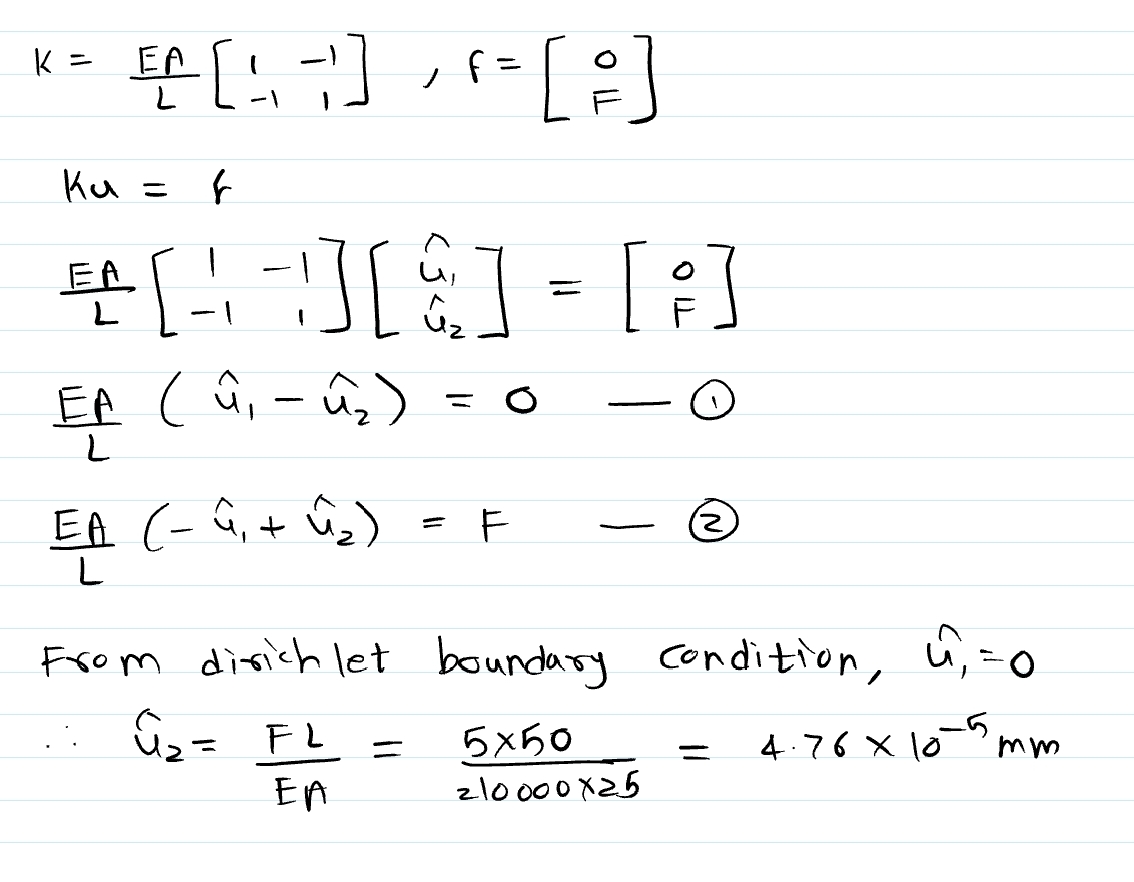 K = EA/L [1 -1; -1 1] , f = [0; F]
Ku = f
EA/L [1 -1; -1 1] [û₁; û₂] = [0; F]
EA/L (û₁ - û₂) = 0 — ①
EA/L (-û₁ + û₂) = F — ②
From dirichlet boundary condition, û₁=0
∴ û₂ = FL/EA = 5×50/210000×25 = 4.76 × 10⁻⁵ mm